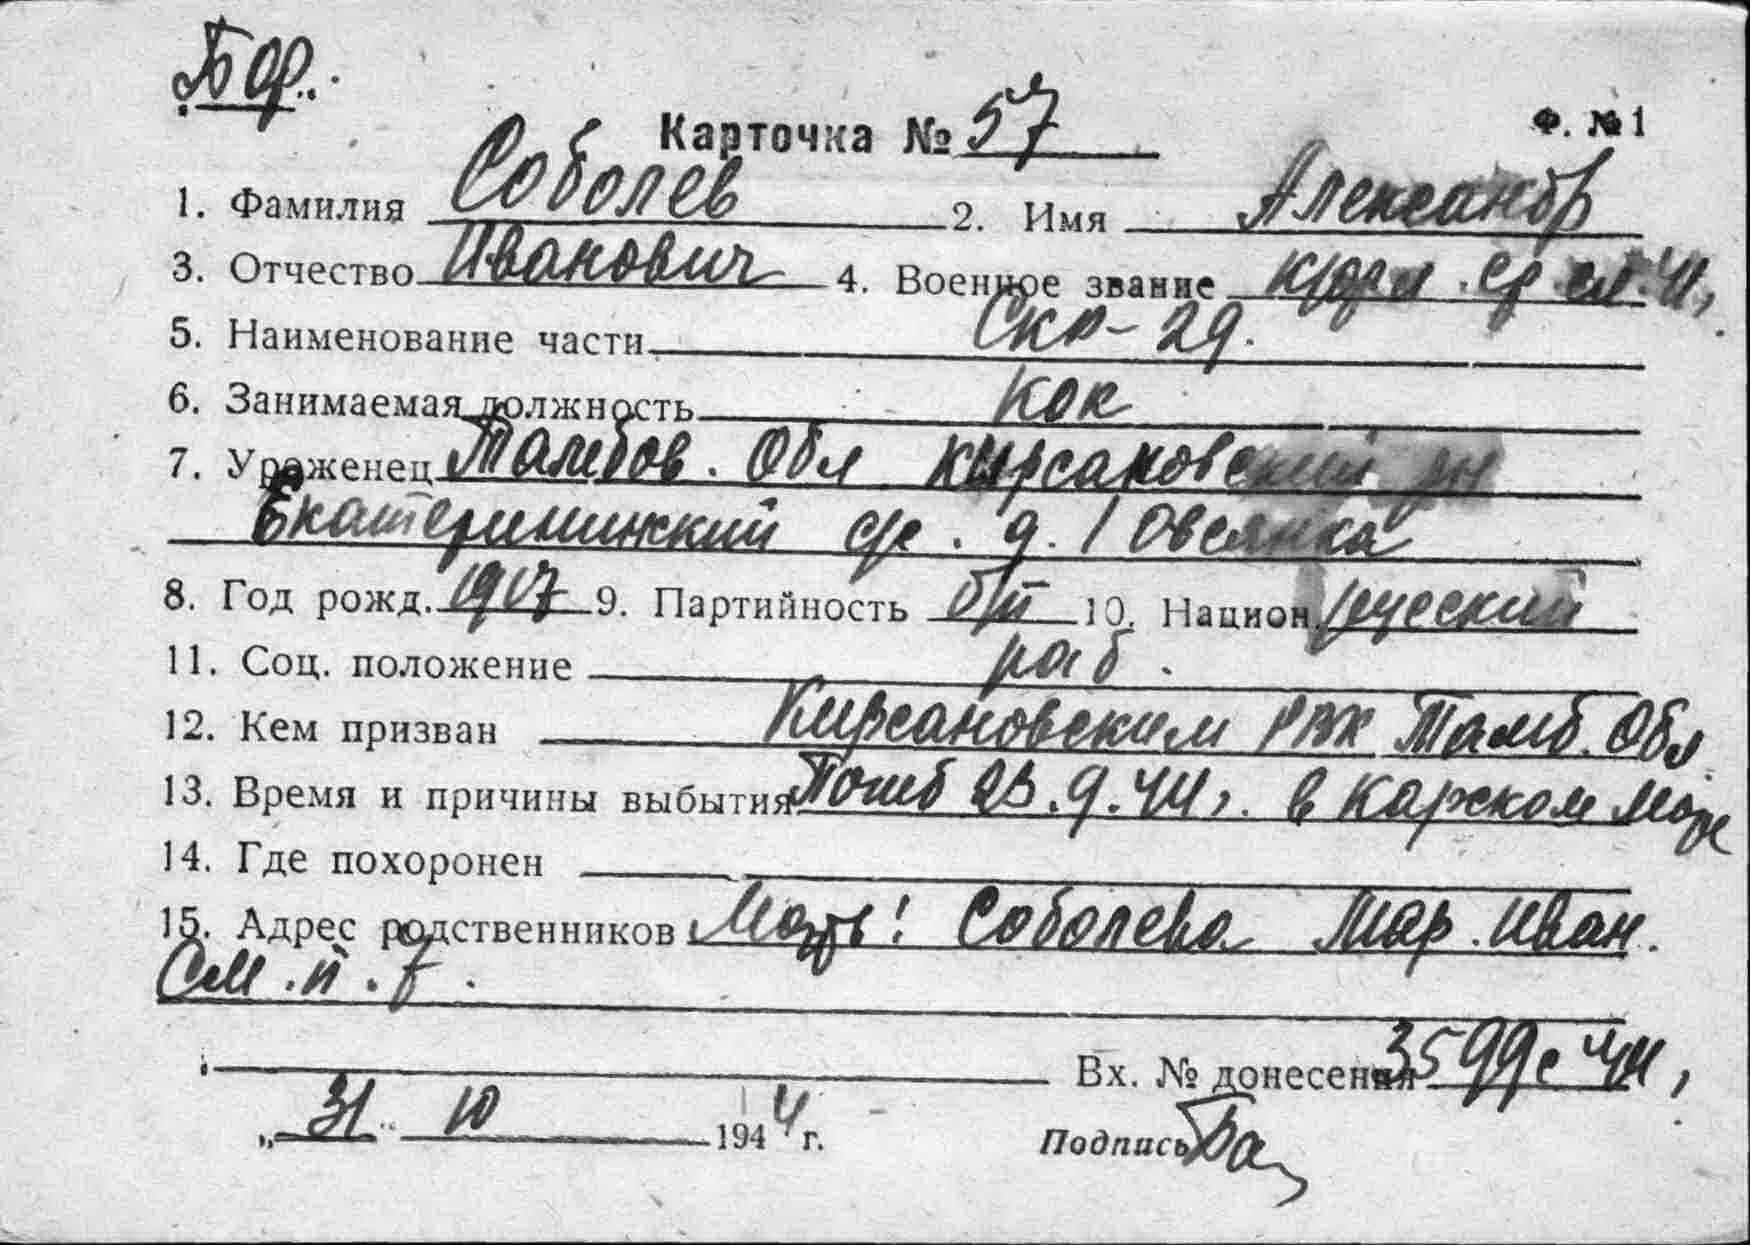 Бор.
Карточка № 57 Ф. № 1
1. Фамилия Соболев 2. Имя Александр
3. Отчество Иванович 4. Военное звание
5. Наименование части СКР-29.
6. Занимаемая должность Кок
7. Уроженец Тамбов. Обл Кирсановский рн
Екатерининский с/с. д. Овсянка
8. Год рожд. 1917 9. Партийность б/п 10. Национ. русский
11. Соц. положение раб.
12. Кем призван Кирсановским РВК Тамб. Обл
13. Время и причины выбытия Погиб 23.9.44г. в Карском море
14. Где похоронен
15. Адрес родственников Мать: Соболева Мар. Иван.
См. п. 7.
Вх. № донесения 3599с 44г,
„31" 10 1944 г. Подпись